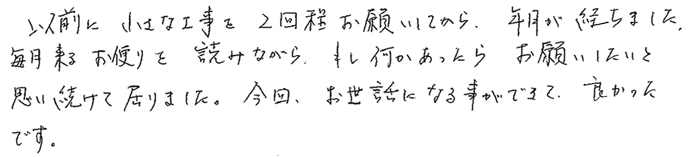 以前に 小さな工事を 2回程 お願いしてから、年月が 経ちました。
毎月来る お便りを 読みながら、もし何かあったら お願いしたいと
思い続けて居りました。今回、お世話になる事ができて、良かった
です。